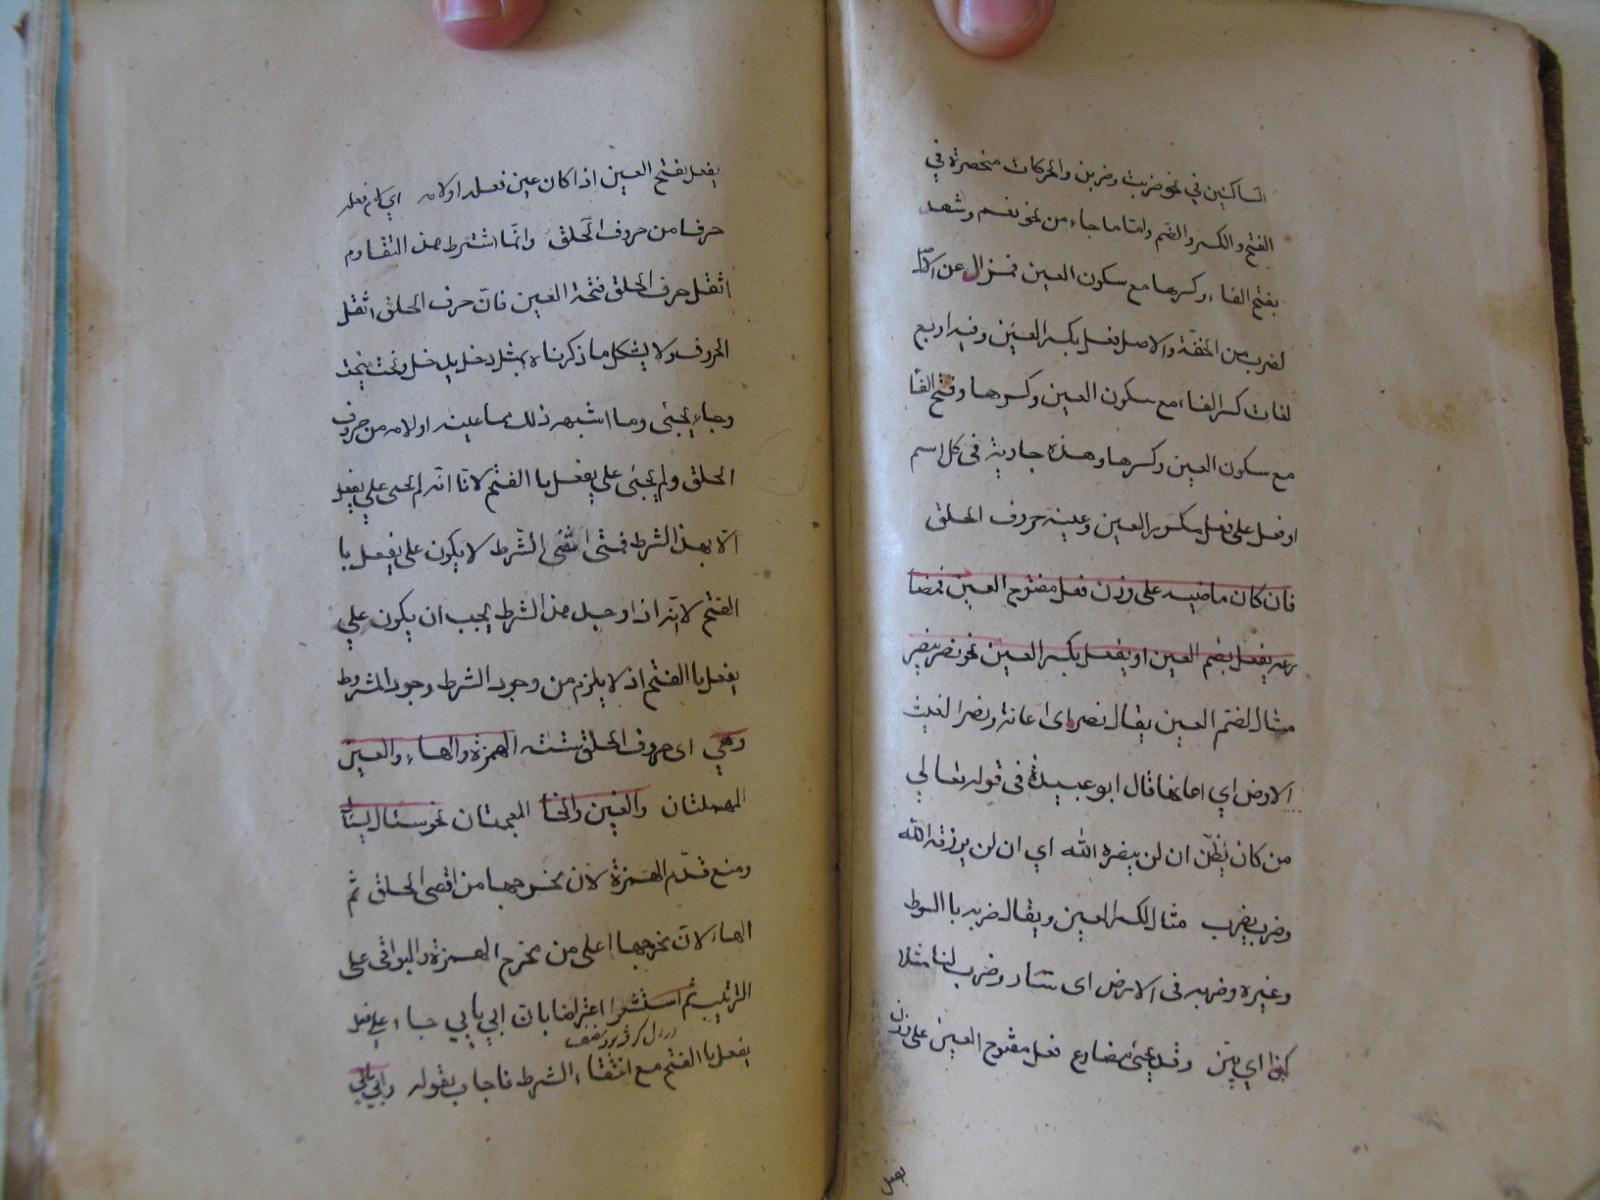 الساكنين في نحو ضربت وضربن والحركات منحصرة في
الفتح والكسر والضم واما ما جاء من نحو نعم وشهد
بفتح الفاء وكسرها مع سكون العين فمزال عن الاصل
لضرب من الخفة والاصل فعل بكسر العين وفيه اربع
لغات كسر الفاء مع سكون العين وكسرها وفتح الفا
مع سكون العين وكسرها وهذه جارية في كل اسم
او فعل على فعل مكسور العين وعينه حروف الحلق
فان كان ماضيه على وزن فعل مفتوح العين فمضا
رعه يفعل بضم العين او يفعل بكسر العين نحو نصر ينصر
مثال لضم العين يقال نصره اى اعانة ونصر الغيث
الارض اي اعانها قال ابو عبيدة فى قوله تعالي
من كان يظن ان لن ينصره الله اي ان لن يرزقه الله
وضرب يضرب مثال لكسر العين ويقال ضربه بالسوط
وغيره وضربه فى الارض اى سار وضرب لنا مثلا
كذا اي بين وقد يجئ مضارع فعل مفتوح العين على وزن
يفعل
يفعل بفتح العين اذا كان عين فعله او لامه اي لام فعله
حرفا من حروف الحلق وانما اشترط هذا التقاوم
اثقل حرف الحلق فتحة العين فان حرف الحلق اثقل
الحروف ولا يشكل ما ذكرناه بمثل دخل يدخل ونحت ينحت
وجاء يجئى وما اشبهه ذلك مما عينه او لامه من حروف
الحلق ولم يجئى على يفعل با الفتح لانا انه لم يجئ علي يفعل
الا بهذا الشرط فمتى انتفى الشرط لا يكون على يفعل با
الفتح لانه اذا وجد هذا الشرط يجب ان يكون علي
يفعل با الفتح اذ لا يلزم من وجود الشرط وجود المشروط
وهي اى حروف الحلق ستته الهمزة والهاء والعين
المهملتان والغين والخا المعجمتان نحو سئال يسئال
ومنع قدم الهمزة لان مخرجها من اقصى الحلق ثم
الهاء لان مخرجها اعلى من مخرج الهمزة والبواقى على
الترتيب ثم استشعر اعتراضا بان ابي يابي جاء على فعل
يفعل با الفتح مع انتقاء الشرط فاجاب بقوله وابي يابي